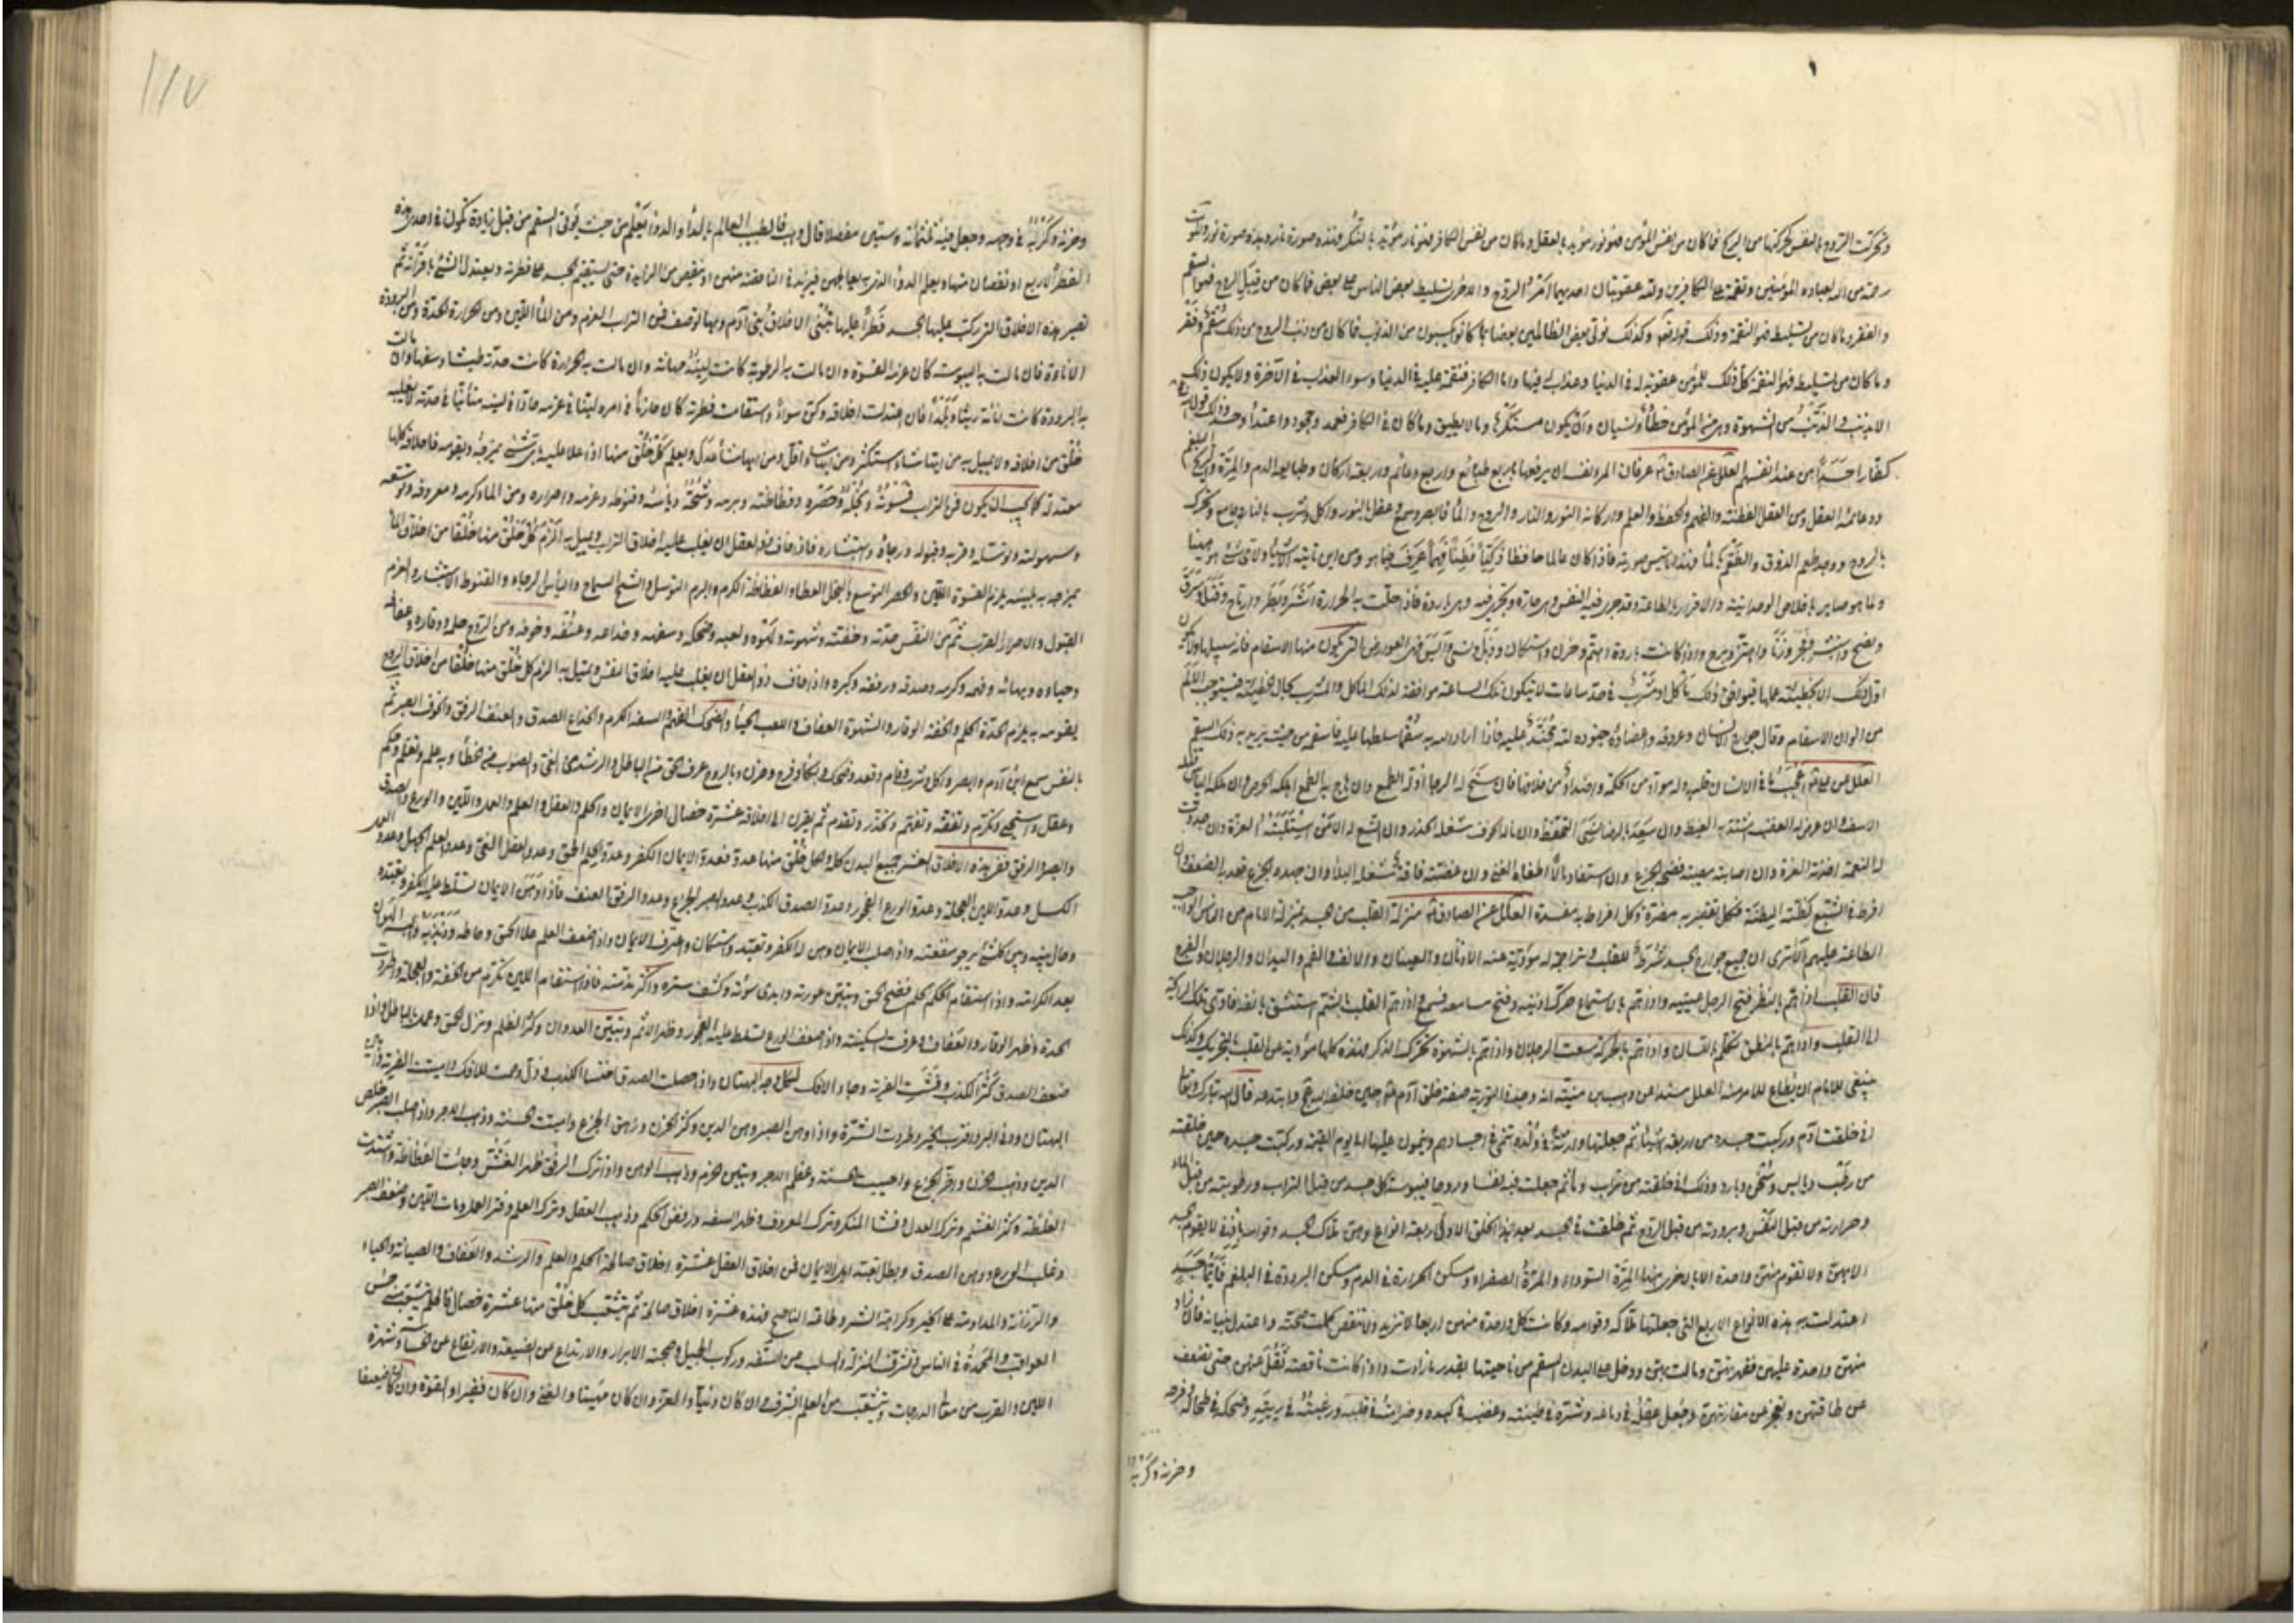 وتحركت الروح بالنفس حركتها من الريح فما كان من نفس المؤمن فهو نور مؤيد بالعقل وما كان من نفس الكافر فهو نار مؤيد بالنكر فهذه صورة نار وهذه صورة نور والموت
رحمة من الله لعباده المؤمنين ونقمة على الكافرين ولله عقوبتان احديهما امر الروح والاخرى تسليط بعض الناس على بعض فما كان من قبل الروح فهو السقم
والفقر وما كان من تسليط فهو النقمة وذلك قوله وكذلك نولي بعض الظالمين بعضا بما كانوا يكسبون من الذنوب فما كان من ذنب الروح من ذلك سقم وفقر
وما كان من تسليط فهو النقمة كل ذلك للمؤمن عقوبة له في الدنيا وعذاب له فيها واما الكافر فنقمة عليه في الدنيا وسوء العذاب في الآخرة ولا يكون ذلك
الا بذنب والذنب من الشهوة وهي من المؤمن خطأ ونسيان وان يكون مستكرها وما لا يطيق وما كان في الكافر فعمد وجحود واعتداء وحسد وذلك قوله
كفارا حسدا من عند انفسهم العلل عن الصادق عرفان المرء نفسه ان يعرفها باربع طبائع واربع دعائم واربعة اركان وطبايعه الدم والمرة والريح والبلغم
ودعائمه العقل ومن العقل الفطنة والفهم والحفظ والعلم واركانه النور والنار والروح والماء فابصر وسمع وعقل بالنور واكل وشرب بالنار وجامع وتحرك
بالروح ووجد طعم الذوق والطعم بالماء فهذا تاسيس صورته فاذا كان عالما حافظا ذكيا فطنا فهما عرف فيما هو ومن اين تاتيه الاشياء ولاي شيء هو ههنا
ولما هو صاير باخلاص الوحدانية والاقرار بالطاعة وقد جرى فيه النفس وهي حارة وتجري فيه وهي باردة فاذا حلت به الحرارة اشر وبطر وارتاح وقتل وسرق
ونصح واستبشر وفجر وزنا واهتز وبرح واذا كانت باردة اهتم وحزن واستكان وذبل ونسي وآيس فهي العوارض التي يكون منها الاسقام فانه سبيلها ولا يكون
اول ذلك الا لخطيئة عملها فيوافق ذلك ماكل او مشرب في احد ساعات لا يكون تلك الساعة موافقة لذلك الماكل والمشرب بحال الخطيئة فيستوجب الالم
من الوان الاسقام وقال جوارح الانسان وعروقه واعضاؤه جنود لله مجندة عليه فاذا اراد الله به سقما سلطها عليه فاسقمه من حيث يريد به ذلك السقم
له النعمة اخذته العزة وان اصابته مصيبة فضحه الجزع وان استفاد مالا اطغاه الغنى وان عضته فاقة شغله البلاء وان جهده الجزع قعد به الضعف وان
افرط في الشبع كظته البطنة فكل تقصير به مضر وكل افراط به مفسد العلل عن الصادق منزلة القلب من الجسد بمنزلة الامام من الناس الواجب
الطاعة عليهم الا ترى ان جميع جوارح الجسد شرط للقلب وتراجمة له مؤدية عنه الاذنان والعينان والانف والفم واليدان والرجلان والفرج
فان القلب اذا هم بالنظر فتح الرجل عينيه واذا هم بالاستماع حرك اذنيه وفتح مسامعه فسمع واذا هم القلب بالشم استنشق بانفه فادى تلك الرايحة
الى القلب واذا هم بالنطق تكلم باللسان واذا هم بالحركة سعت الرجلان واذا هم بالشهوة تحرك الذكر فهذه كلها مؤدية عن القلب بالتحريك وكذلك
ينبغي للامام ان يطاع للامر منه العلل مسندا عن وهب بن منبه انه وجد في التورية صفة خلق آدم حين خلقه الله وابتدعه قال الله تبارك وتعالى
اني خلقت آدم وركبت جسده من اربعة اشياء ثم جعلتها وراثة في ولده تنمى في اجسادهم وينمون عليها الى يوم القيمة وركبت جسده حين خلقته
من رطب ويابس وسخن وبارد وذلك اني خلقته من تراب وماء ثم جعلت فيه نفسا وروحا فيبوسة كل جسد من قبل التراب ورطوبته من قبل الماء
وحرارته من قبل النفس وبرودته من قبل الروح ثم خلقت في الجسد بعد هذا الخلق الاول اربعة انواع وهن ملاك الجسد وقوامه باذني لا يقوم الجسد
الا بهن ولا تقوم منهن واحدة الا بالاخرى منها المرة السوداء والمرة الصفراء وسكن الحرارة في الدم وسكن البرودة في البلغم فايما جسد
اعتدلت به هذه الانواع الاربع التي جعلتها ملاكه وقوامه وكانت كل واحدة منهن اربعا لا تزيد ولا تنقص كملت صحته واعتدل بنيانه فان زاد
منهن واحدة عليهن فقهرتهن ومالت بهن ودخل على البدن السقم من ناحيتها بقدر ما زادت واذا كانت ناقصة تقل عنهن حتى تضعف
عن طاقتهن وتعجز عن مقارنتهن وجعل عقله في دماغه وشره في طينته وغضبه في كبده وصرامته في قلبه ورغبته في ريته وضحكه في طحاله وفرحه
وحزنه وكربه
وحزنه وكربه في وجهه وجعل فيه ثلثمائة وستين مفصلا قال وهب فالطبيب العالم بالداء والدواء يعلم من حيث يؤتى السقم من قبل زيادة تكون في احدى هذه
الفطر الاربع او نقصان منها ويعلم الدواء الذي به يعالجهن فيزيد في الناقصة منهن او ينقص من الزايدة حتى يستقيم الجسد على فطرته ويعتدل الشيء باقرانه ثم
تصير هذه الاخلاق التي ركبت عليها الجسد فطرا عليها تبنى الاخلاق بني آدم وبها توصف فمن التراب العزم ومن الماء اللين ومن الحرارة الحدة ومن البرودة
الاناة فان مالت به اليبوسة كان عزمه القسوة وان مالت به الرطوبة كانت لينة مهانة وان مالت به الحرارة كانت حدته طيشا وسفها وان مالت
به البرودة كانت اناته ريثا وبلدا فان اعتدلت اخلاقه وكن سواء واستقامت فطرته كان حازما في امره لينا في عزمه حادا في لينه متانيا في حدته لا يغلبه
خلق من اخلاقه ولا يميل به من ايها شاء استكثر ومن ايها شاء اقل ومن ايها شاء عدل ويعلم كل خلق منها اذا علا عليه باي شيء يمزجه ويقومه فاخلاقه كلها
معتدلة كما يجب ان يكون فمن التراب قسوته وبخله وحصره وفظاظته وبرمه وشحه ويأسه وقنوطه وعزمه واصراره ومن الماء كرمه ومعروفه وتوسعه
وسهولته وتوسله وقربه وقبوله ورجاؤه واستبشاره فاذا خاف ذو العقل ان يغلب عليه اخلاق التراب ويميل به الزم كل خلق منها خلقا من اخلاق الماء
يمزجه به بلينه يلزم القسوة اللين والحصر التوسع والبخل العطاء والفظاظة الكرم والبرم التوسل والشح السماح والياس الرجاء والقنوط الاستبشار والعزم
القبول والاصرار القرب ثم من النفس حدته وخفته وشهوته ولهوه ولعبه وضحكه وسفهه وخداعه وعنفه وخوفه ومن الروح حلمه ووقاره وعفافه
وحياؤه وبهاؤه وفهمه وكرمه وصدقه ورفقه وكبره واذا خاف ذو العقل ان يغلب عليه اخلاق النفس ويميل به الزم كل خلق منها خلقا من اخلاق الروح
يقومه به يلزم الحدة الحلم والخفة الوقار والشهوة العفاف واللعب الحياء والضحك الفهم والسفه الكرم والخداع الصدق والعنف الرفق والخوف الصبر ثم
بالنفس سمع ابن آدم وابصر واكل وشرب وقام وقعد وضحك وبكى وفرح وحزن وبالروح عرف الحق من الباطل والرشد من الغي والصواب من الخطأ وبه علم وتعلم وحكم
وعقل واستحيى وتكرم وتفقه وتفهم وتحذر وتقدم ثم يقرن الى اخلاقه عشرة خصال اخرى الايمان والحلم والعقل والعلم والعمل واللين والورع والصدق
والصبر والرفق ففي هذه الاخلاق العشر جميع البدن كله ولكل خلق منها عدو فعدو الايمان الكفر وعدو الحلم الحمق وعدو العقل الغي وعدو العلم الجهل وعدو العمل
الكسل وعدو اللين العجلة وعدو الورع الفجور وعدو الصدق الكذب وعدو الصبر الجزع وعدو الرفق العنف فاذا وهن الايمان تسلط عليه الكفر وتعبده
وحال بينه وبين كل شيء يرجو منفعته واذا صلب الايمان وهن له الكفر وتعبد واستكان واعترف الايمان واذا ضعف الحلم علا الحمق وحاطه وذبذبه والبسه الهوان
بعد الكرامة واذا استقام الحلم فضح الحمق وتبين عورته وابدى سوئته وكشف ستره واكثر مذمته فاذا استقام اللين تكرم من الخفة والعجلة واطردت
الحدة وظهر الوقار والعفاف وعرفت السكينة واذا ضعف الورع تسلط عليه الفجور وظهر الاثم وتبين العدوان وكثر الظلم ونزل الحمق وعمل بالباطل واذا
ضعف الصدق كثر الكذب وفشت الفرية وجاء الافك بكل وجه البهتان واذا حصل الصدق اختسا الكذب وذل وصمت الافك واميتت الفرية واهين
البهتان ودنا البر واقترب الخير وطردت الشرة واذا وهن الصبر وهن الدين وكثر الحزن وزهق الجزع واميتت الحسنة وذهب الاجر واذا صلب الصبر خلص
الدين وذهب الحزن واخر الجزع واحييت الحسنة وعظم الاجر وتبين الحزم وذهب الوهن واذا ترك الرفق ظهر الغش وجاءت الفظاظة واشتدت
الغلظة وكثر الغشم وترك العدل وفشا المنكر وترك المعروف وظهر السفه ورفض الحلم وذهب العقل وترك العلم وفتر العمل ومات اللين وضعف الصبر
وغلب الورع ووهن الصدق وبطل تعبد اهل الايمان فمن اخلاق العقل عشرة اخلاق صالحة الحلم والعلم والرشد والعفاف والصيانة والحياء
والرزانة والمداومة على الخير وكراهة الشر وطاعة الناصح فهذه عشرة اخلاق صالحة ثم يتشعب كل خلق منها عشرة خصال فالحلم يتشعب منه حسن
العواقب والمحمدة في الناس وتشرف المنزلة والسلب عن السفه وركوب الجميل وصحبة الابرار والارتداع عن الضيعة والارتفاع عن الخساسة وشهوة
اللين والقرب من معالي الدرجات ويتشعب من العلم الشرف وان كان دنيا والعز وان كان مهينا والغنى وان كان فقيرا والقوة وان كان ضعيفا
١١٧